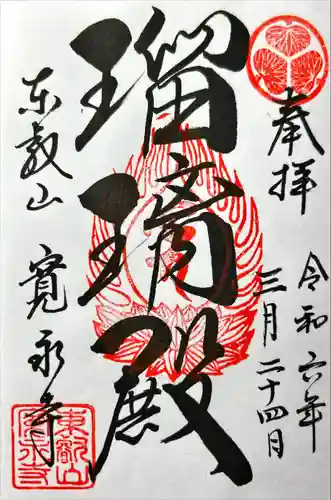 奉拝
令和六年
三月二十四日
瑠璃殿
東叡山
寛永寺
東叡山
寛永寺